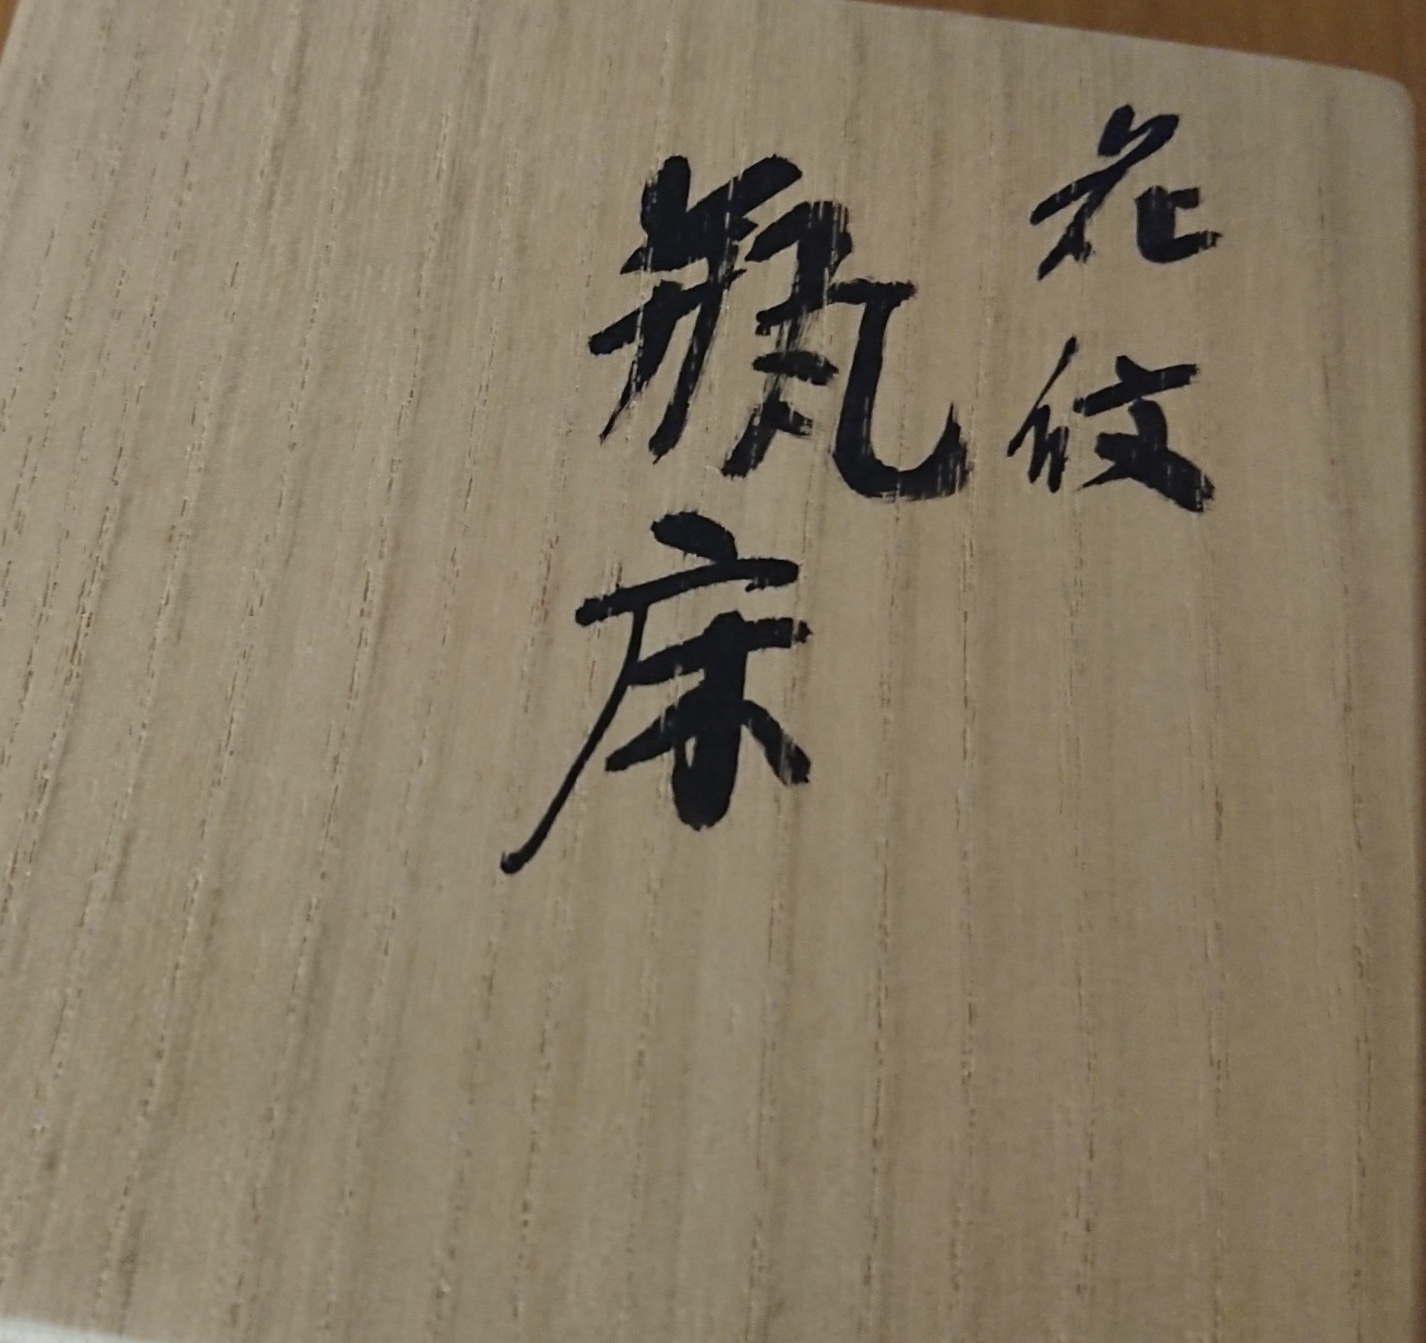 花紋
瓶床